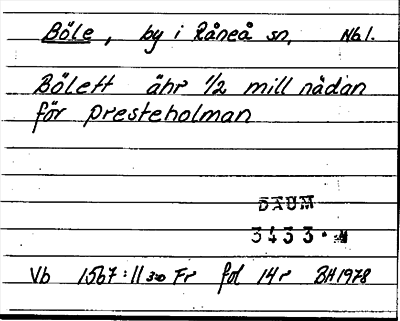 Böle, by i Råneå sn, Nbl.
Bölett ähr 1/2 mill nådan
för presteholman
DAUM
3433
Vb 1567:11 Fr fol 14r BH 1978